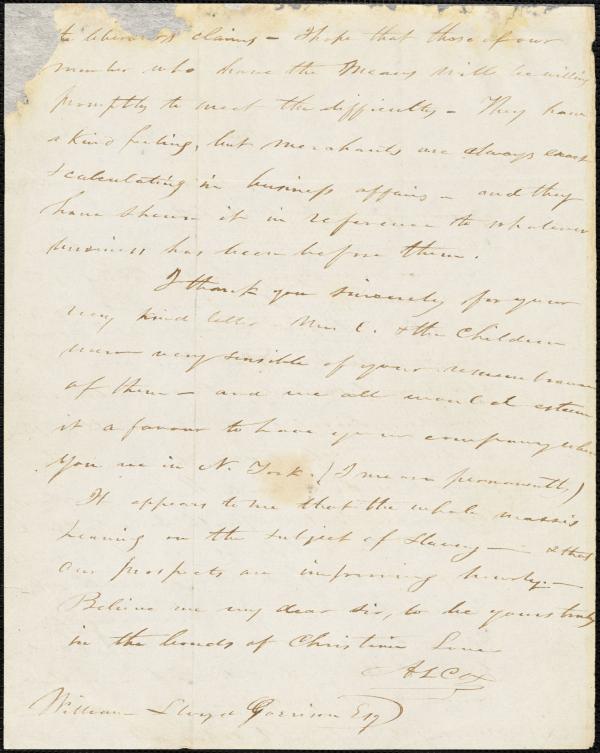 to liberators claims - I hope that those of our
number who have the Means will be willing
promptly to meet the difficulty - They have
a kind feeling, but merchants are always exact
& calculating in business affairs - and they
have shewn it in reference to whatever
business has been before them.
I thank you sincerely for your
very kind letter Mrs C. & the Children
were very sensible of your remembrance
of them - and we all would esteem
it a favour to have your company when
you are in N. York. (I mean permanently)
It appears to me that the whole mass is
heaving on the subject of Slavery - & that
our prospects are improving hourly -
Believe me my dear sir, to be yours truly
in the bonds of Christian Love
A L Cox
William Lloyd Garrison Esq)